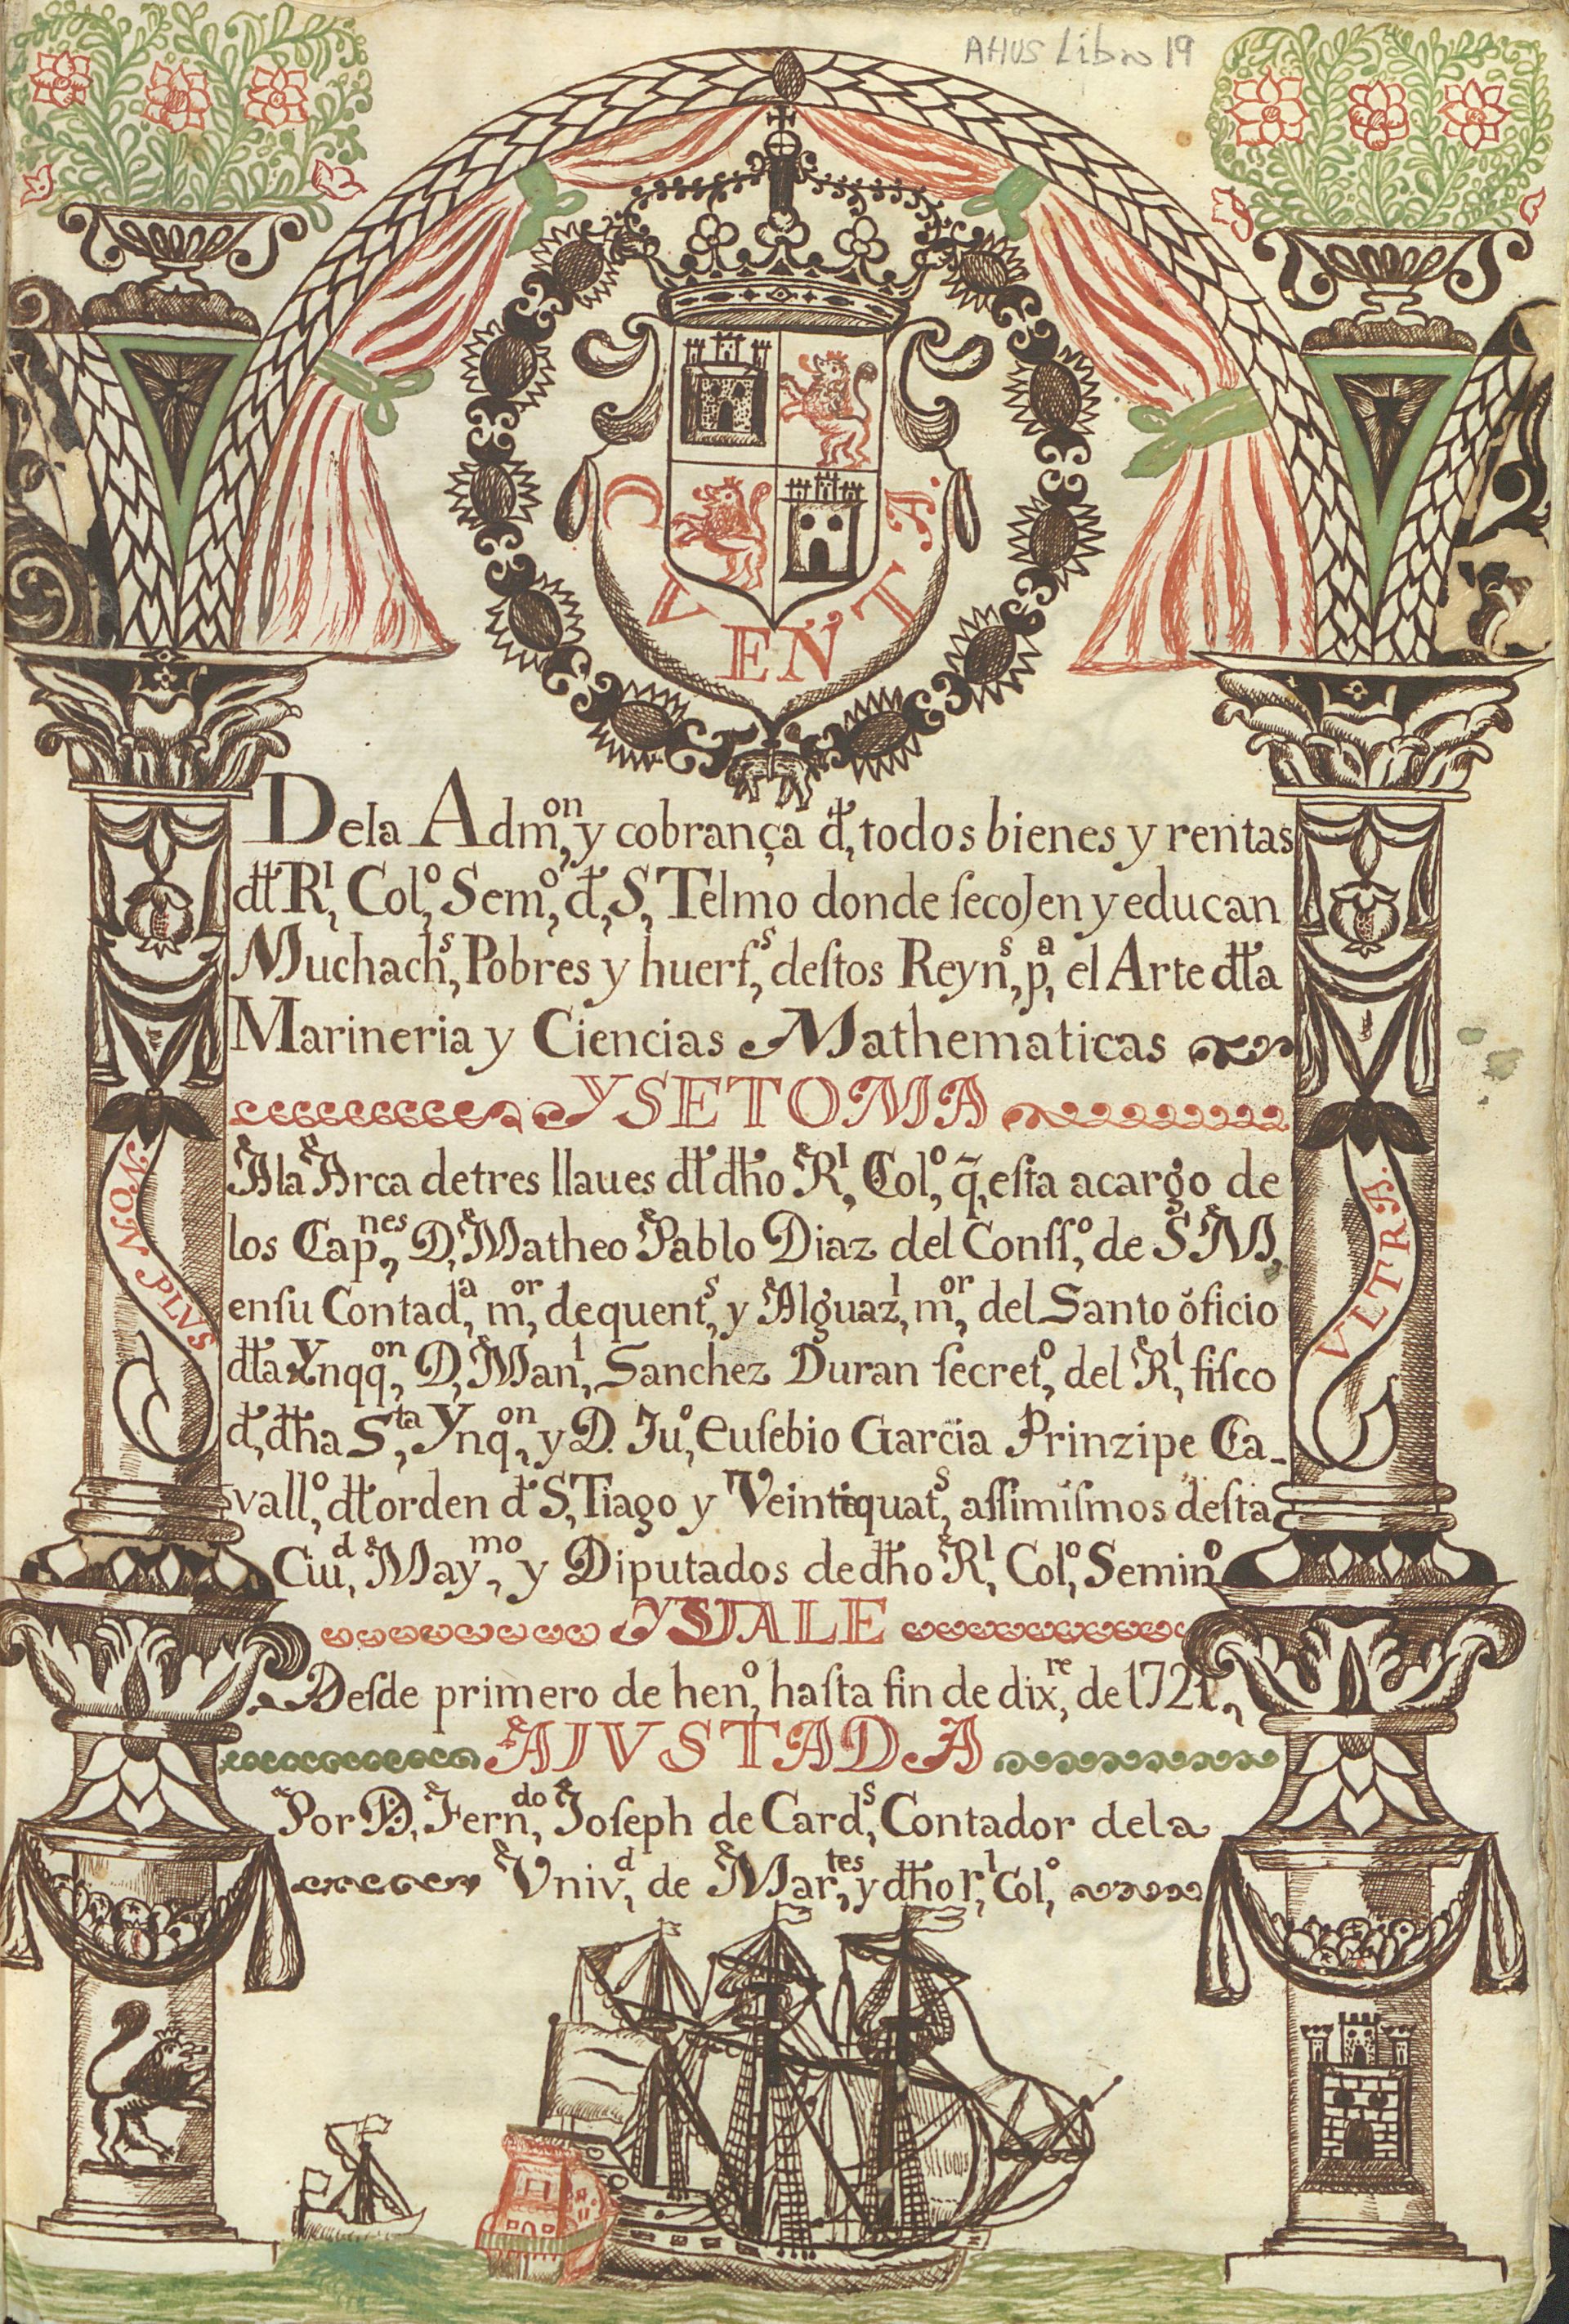 AHUS Libro 19
CVENTA.
Dela Admon, y cobrança đ, todos bienes y rentas
đł Rl, Colo, Semo, đ, S, Telmo donde ſecoJen y educan
Muchachs, Pobres y huerfs, deſtos Reyns, pa, el Arte dła
Marineria y Ciencias Mathematicas
YSETOMA
Ala Arca detres llaues dł dħo Rl, Colo, q̃, eſta acargo de
los Capnes, D, Matheo Pablo Diaz del Conſſo, de S M,
enſu Contada, mor, dequents, y Alguazl, mor, del Santo oficio
dła Ynqqon, D, Manl, Sanchez Duran ſecreto, del Rl, fiſco
đ, dħa Sta, Ynqon, y D. Juo, Euſebio Garcia Prinzipe Ca-
vallo, dł orden đ S, Tiago y Veintiquats, aſſimiſmos deſta
Ciud, Maymo, y Diputados dedħo Rl, Colo, Semino
YSDALE
Deſde primero de heno, haſta fin de dixre, de 1721,
AJVSTADA
Por D, Ferndo, Joſeph de Cards, Contador dela
Vnivd, de Martes, y dħo rl, Colo,
NON PLVS
VLTRA.